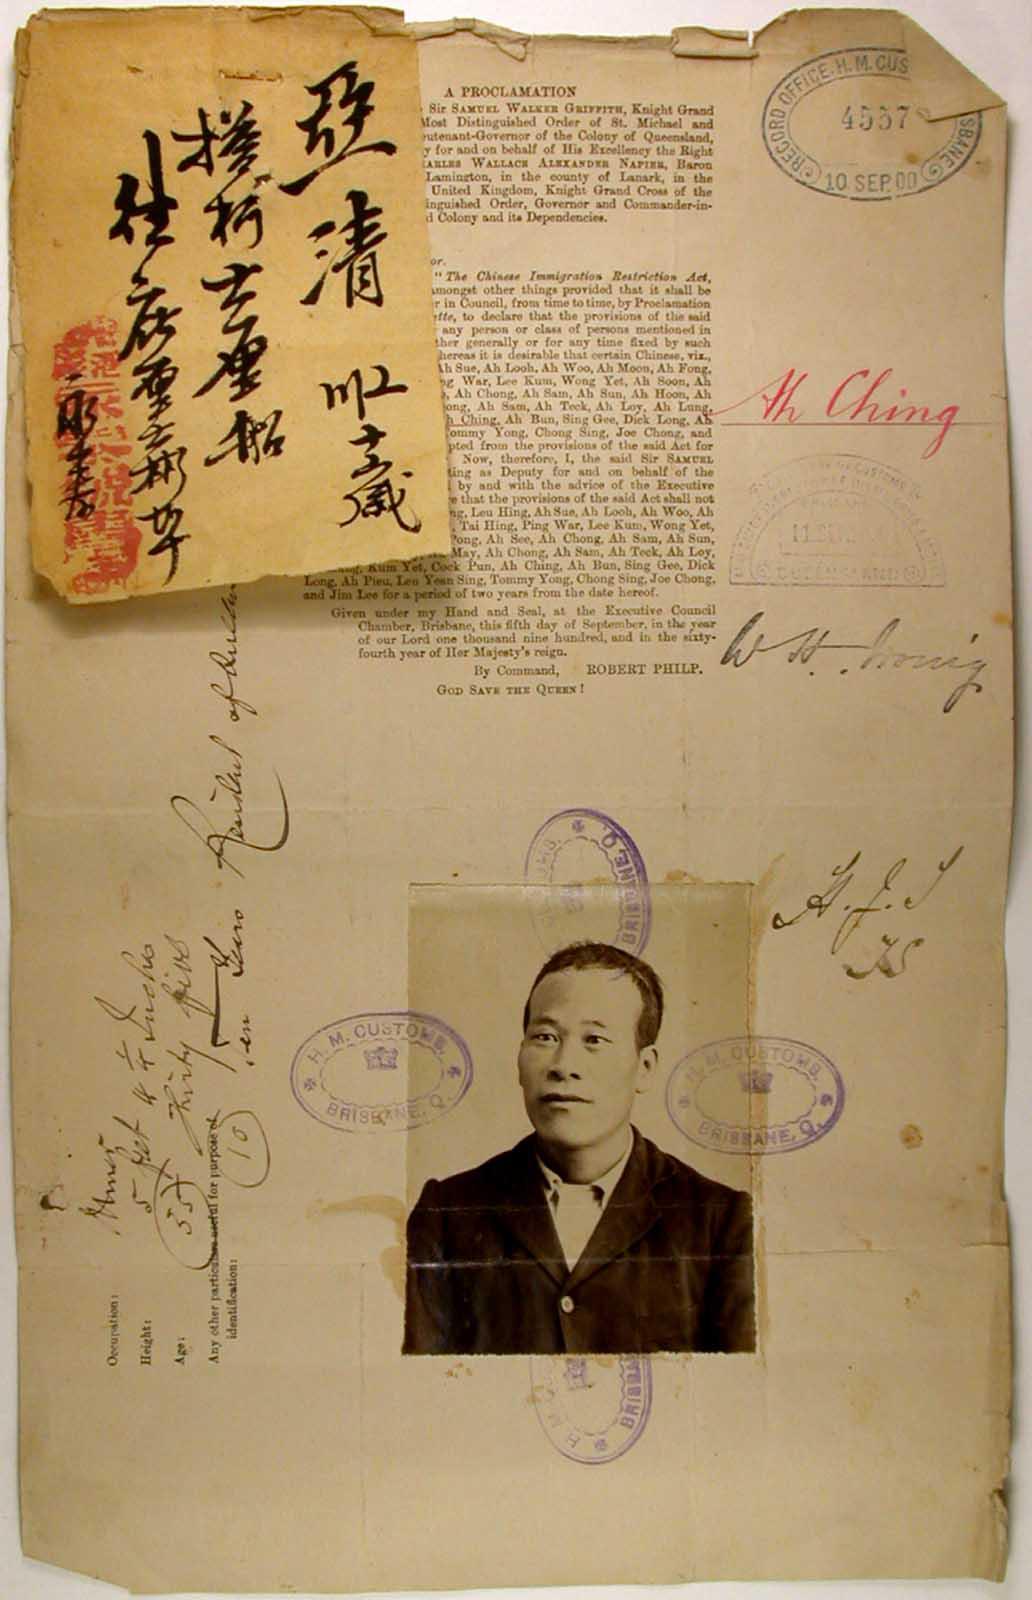 亞清 卅二歲
搭 船
往庇厘
A PROCLAMATION
Sir SAMUEL WALKER GRIFFITH, Knight Grand
Most Distinguished Order of St. Michael and
eutenant-Governor of the Colony of Queensland,
y for and on behalf of His Excellency the Right
ARLES WALLACE ALEXANDER NAPIER, Baron
Lamington, in the county of Lanark, in the
United Kingdom, Knight Grand Cross of the
inguished Order, Governor and Commander-in-
d Colony and its Dependencies.
or.
"The Chinese Immigration Restriction Act,
mongst other things provided that it shall be
r in Council, from time to time, by Proclamation
ette, to declare that the provisions of the said
any person or class of persons mentioned in
ther generally or for any time fixed by such
hereas it is desirable that certain Chinese, viz.,
Ah Sue, Ah Looh, Ah Woo, Ah Moon, Ah Fong,
ng War, Lee Kum, Wong Yet, Ah Soon, Ah
, Ah Chong, Ah Sam, Ah Sun, Ah Hoon, Ah
ong, Ah Sam, Ah Teck, Ah Loy, Ah Lung,
h Ching, Ah Bun, Sing Gee, Dick Long, Ah
Tommy Yong, Chong Sing, Joe Chong, and
pted from the provisions of the said Act for
Now, therefore, I, the said Sir SAMUEL
ting as Deputy for and on behalf of the
by and with the advice of the Executive
e that the provisions of the said Act shall not
ng, Leu Hing, Ah Sue, Ah Looh, Ah Woo, Ah
, Tai Hing, Ping War, Lee Kum, Wong Yet,
Pong, Ah See, Ah Chong, Ah Sam, Ah Sun,
May, Ah Chong, Ah Sam, Ah Teck, Ah Loy,
ung, Kum Yet, Cock Pun, Ah Ching, Ah Bun, Sing Gee, Dick
Long, Ah Pieu, Leu Yean Sing, Tommy Yong, Chong Sing, Joe Chong,
and Jim Lee for a period of two years from the date hereof.
Given under my Hand and Seal, at the Executive Council
Chamber, Brisbane, this fifth day of September, in the year
of our Lord one thousand nine hundred, and in the sixty-
fourth year of Her Majesty's reign.
By Command, ROBERT PHILP.
GOD SAVE THE QUEEN!
RECORD OFFICE. H. M. CUS SBANE
4557
10 SEP. 00
Ah Ching
W H Irving
H. J. S
Occupation: Miner
Height: 5 feet 4¼ Inches
Age: (35) Thirty five
Any other particulars useful for purpose of
identification: (10) Ten Years Resident of
H. M. CUSTOMS.
BRISBANE, Q.
H. M. CUSTOMS.
BRISBANE, Q.
BRISBANE, Q.
H. M CU
BRISBA